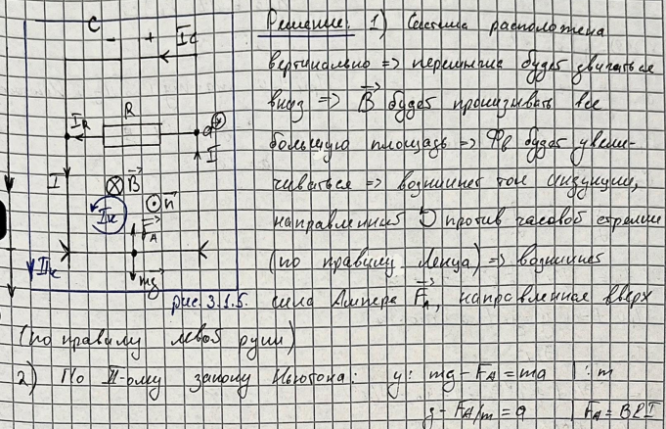 C
- + Ic
IR R
I I
B
Iк n
FA
Iк
mg
рис. 3.1.5.
Решение: 1) Система расположена
вертикально => перемычка будет двигаться
вниз => B будет пронизывать все
большую площадь => Фв будет увели-
чиваться => возникнет ток индукции,
направленный против часовой стрелки
(по правилу Ленца) => возникнет
сила Ампера FA, направленная вверх
(по правилу левой руки)
2) По II-ому закону Ньютона: y: mg - FA = ma | : m
g - FA/m = a | FA = BlI